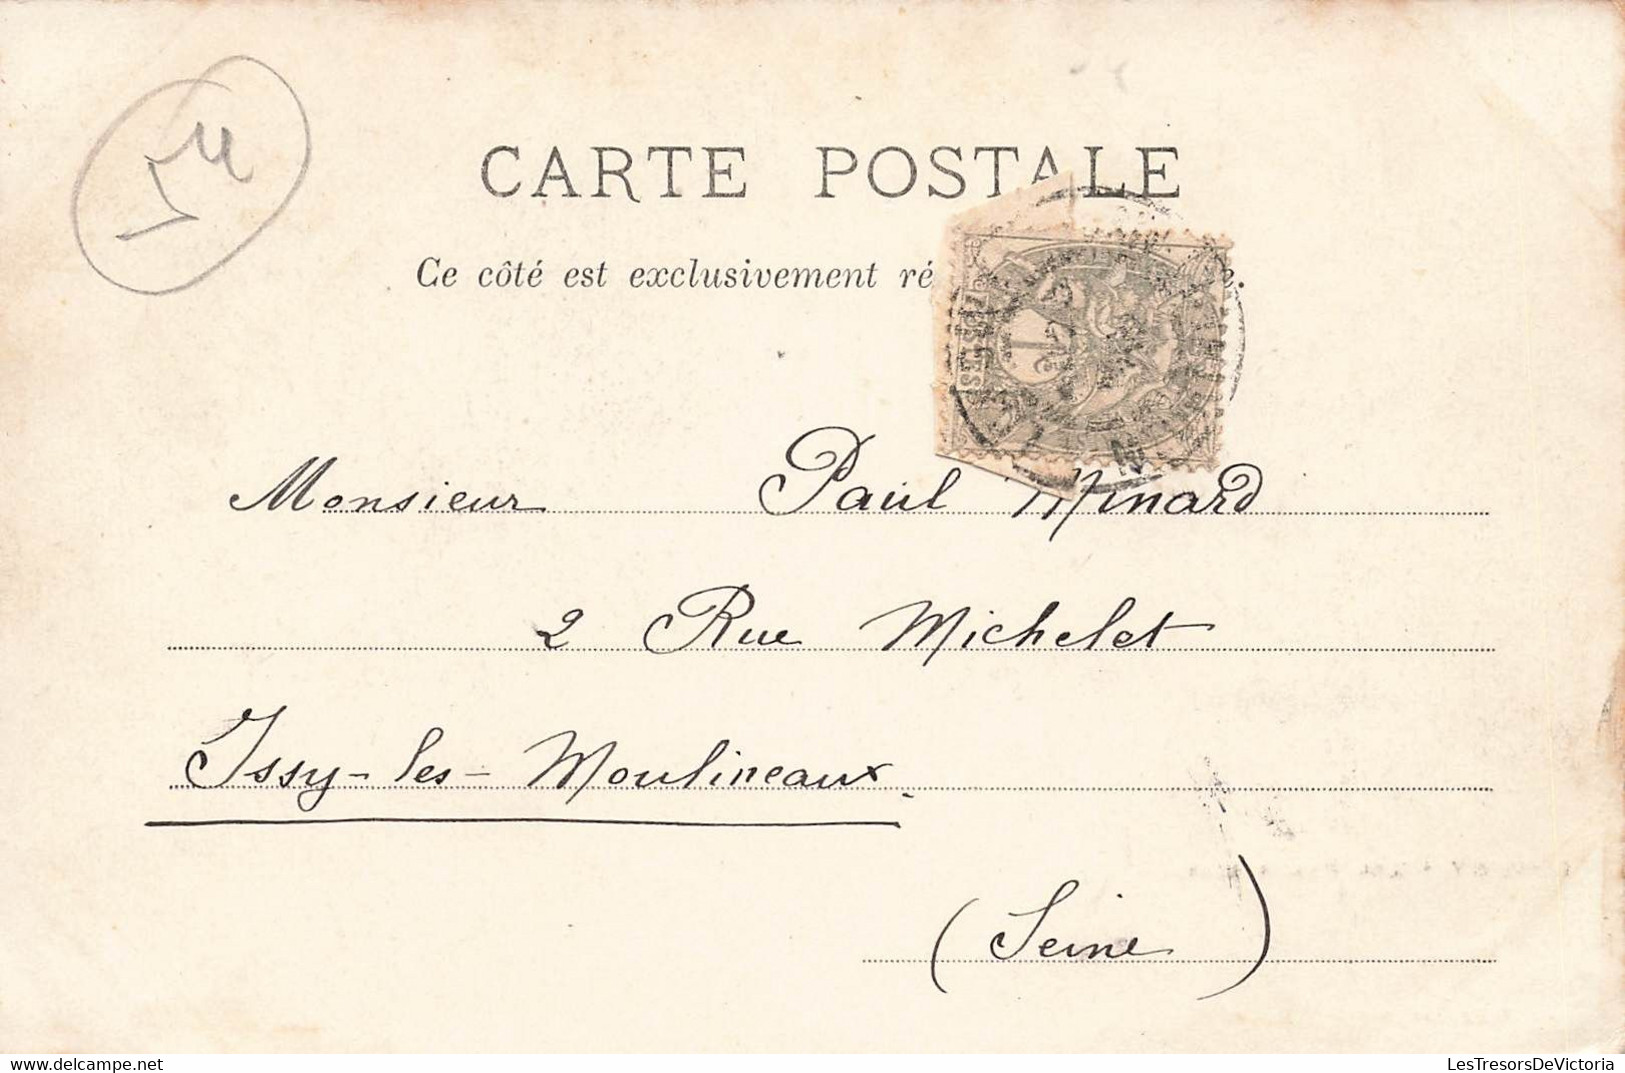 CARTE POSTALE
Ce côté est exclusivement ré e.
Monsieur Paul Minard
2 Rue Michelet
Issy-les-Moulineaux.
(Seine)
www.delcampe.net
LesTresorsDeVictoria